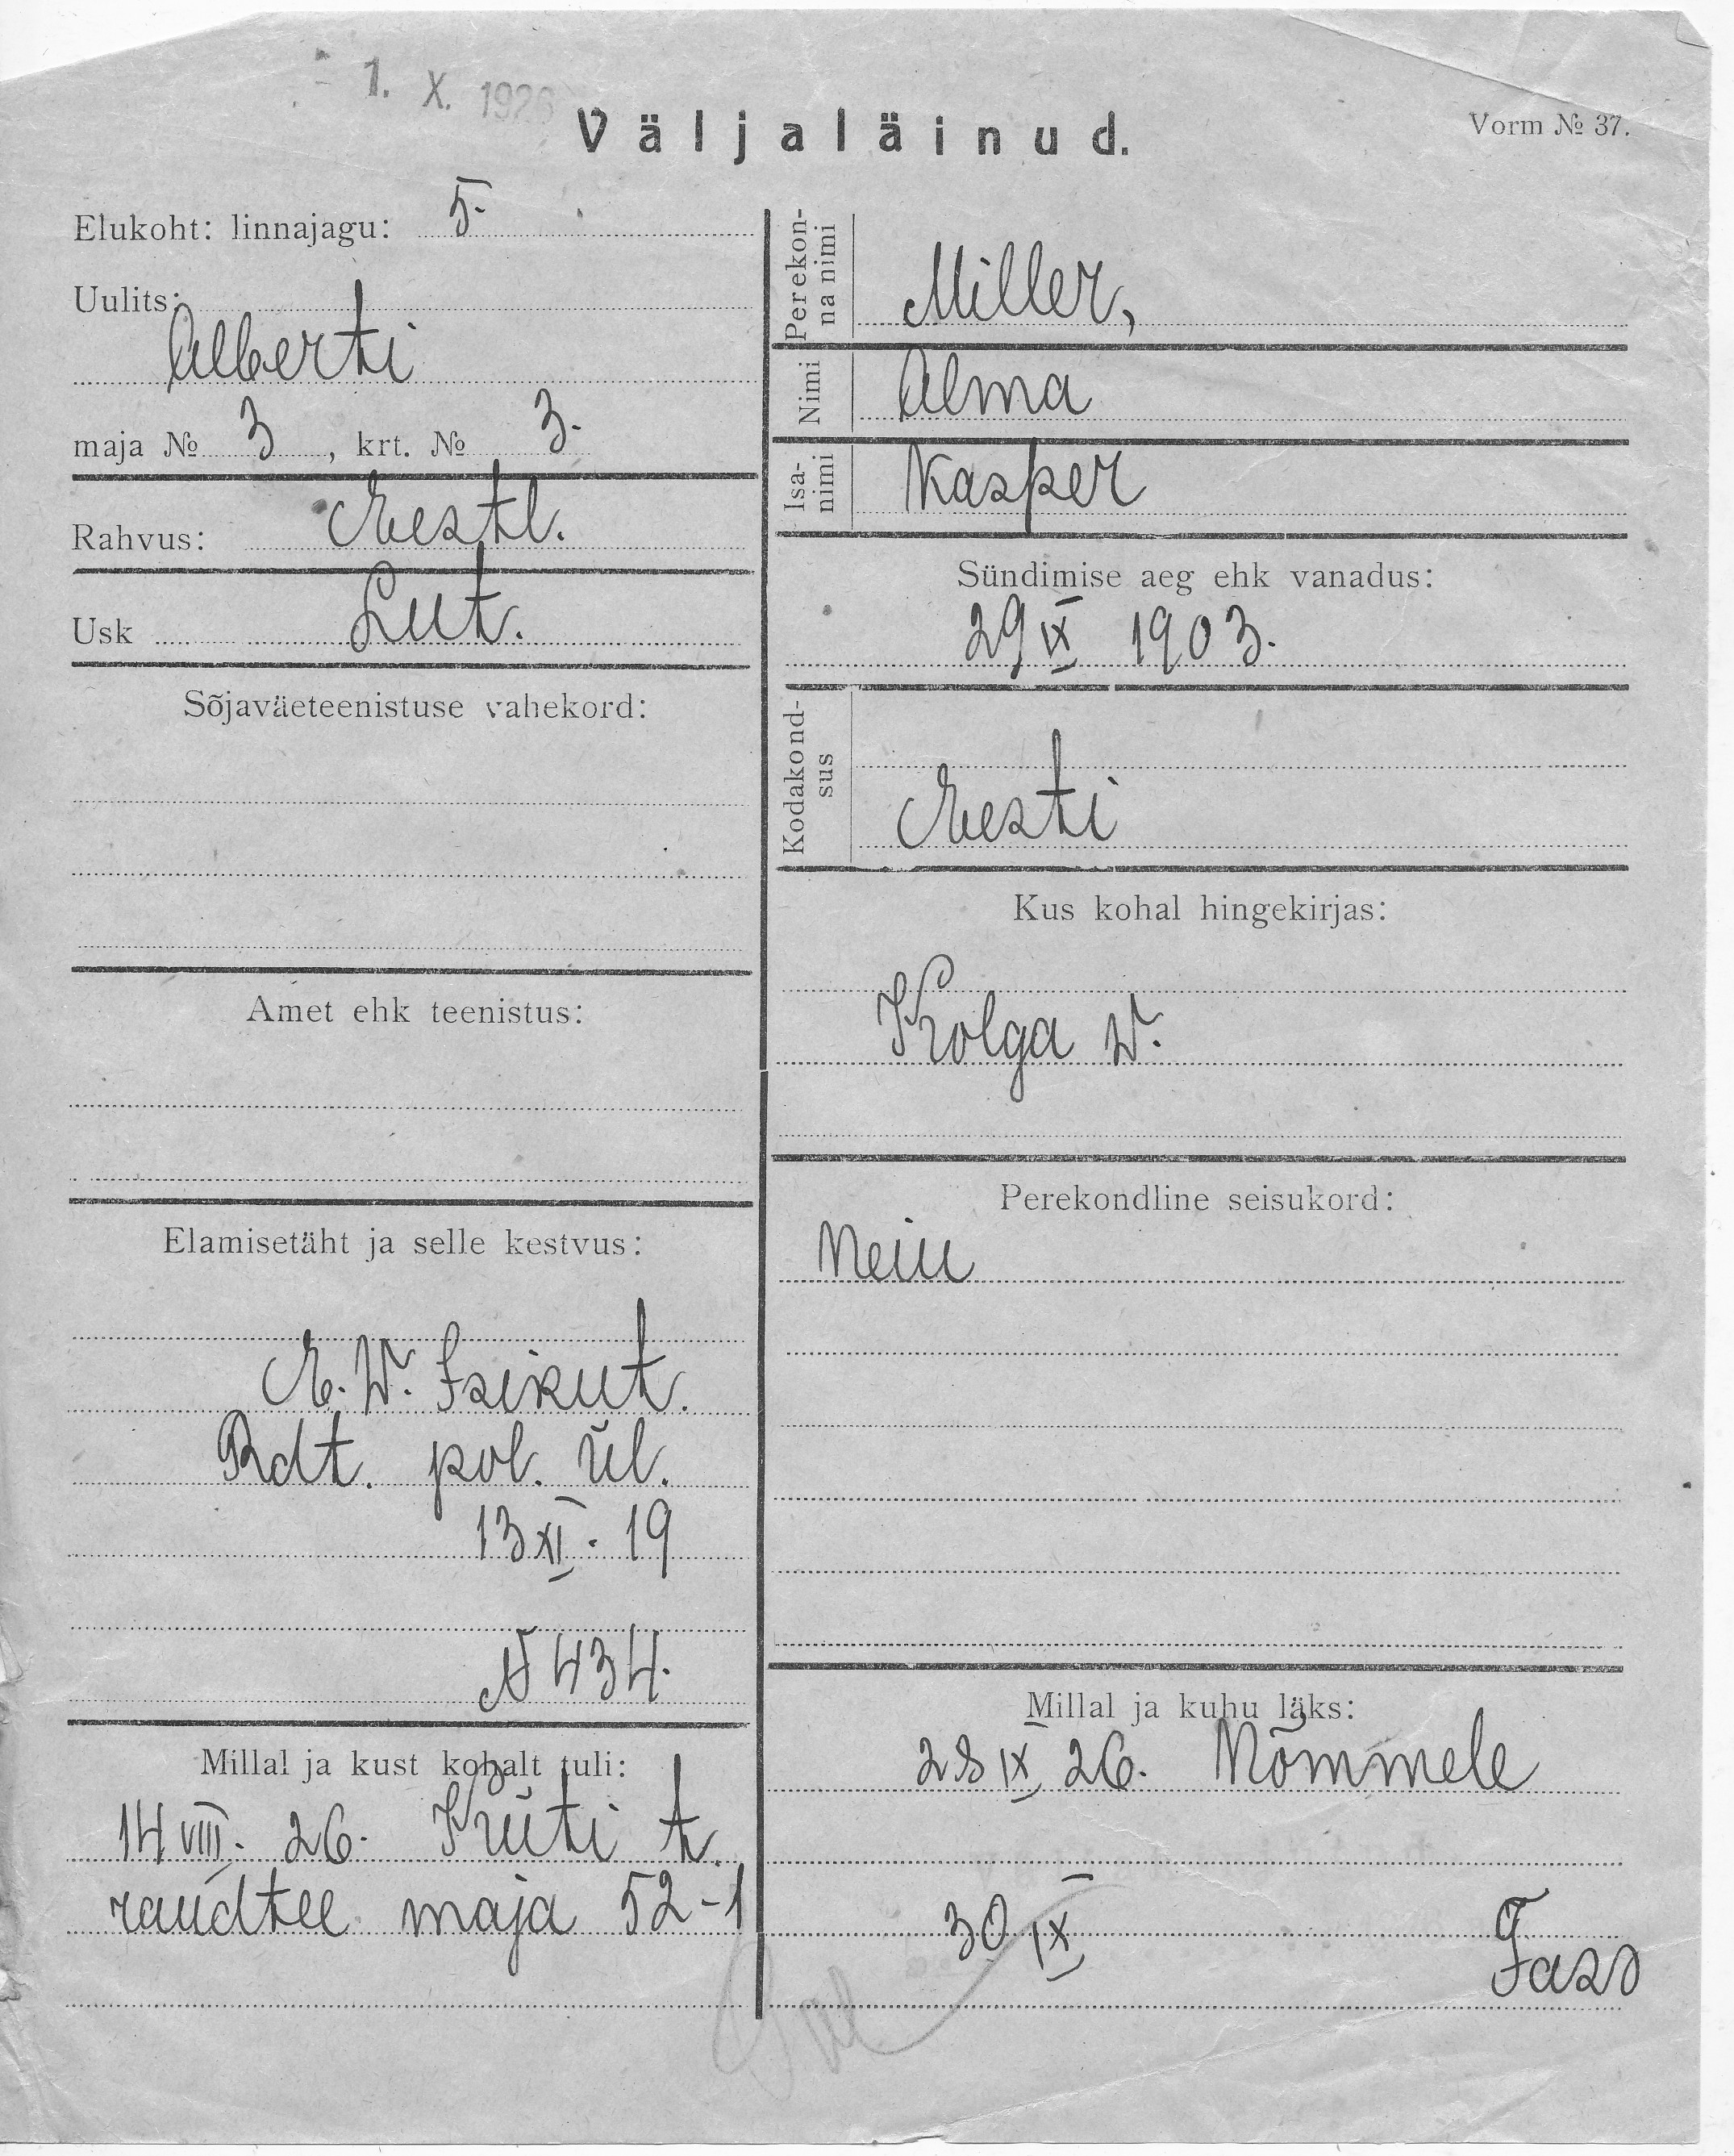 - 1. X. 1926
Väljaläinud.
Vorm № 37.
Elukoht: linnajagu: 5.
Uulits:
Alberti
maja № 3, krt. № 3.
Rahvus: Eestl.
Usk Lut.
Sõjaväeteenistuse vahekord:
Amet ehk teenistus:
Elamisetäht ja selle kestvus:
E. W. Isikut.
Rdt. pol. ül.
13 XI. 19
N 434.
Millal ja kust kohalt tuli:
14 VIII. 26. Küti t.
raudtee maja 52-1
Perekonna nimi Miller,
Nimi Alma
Isanimi Kasper
Sündimise aeg ehk vanadus:
29 IX 1903.
Kodakondsus
Eesti
Kus kohal hingekirjas:
Kolga W.
Perekondline seisukord:
Neiu
Millal ja kuhu läks:
28 IX 26. Nõmmele
30 IX